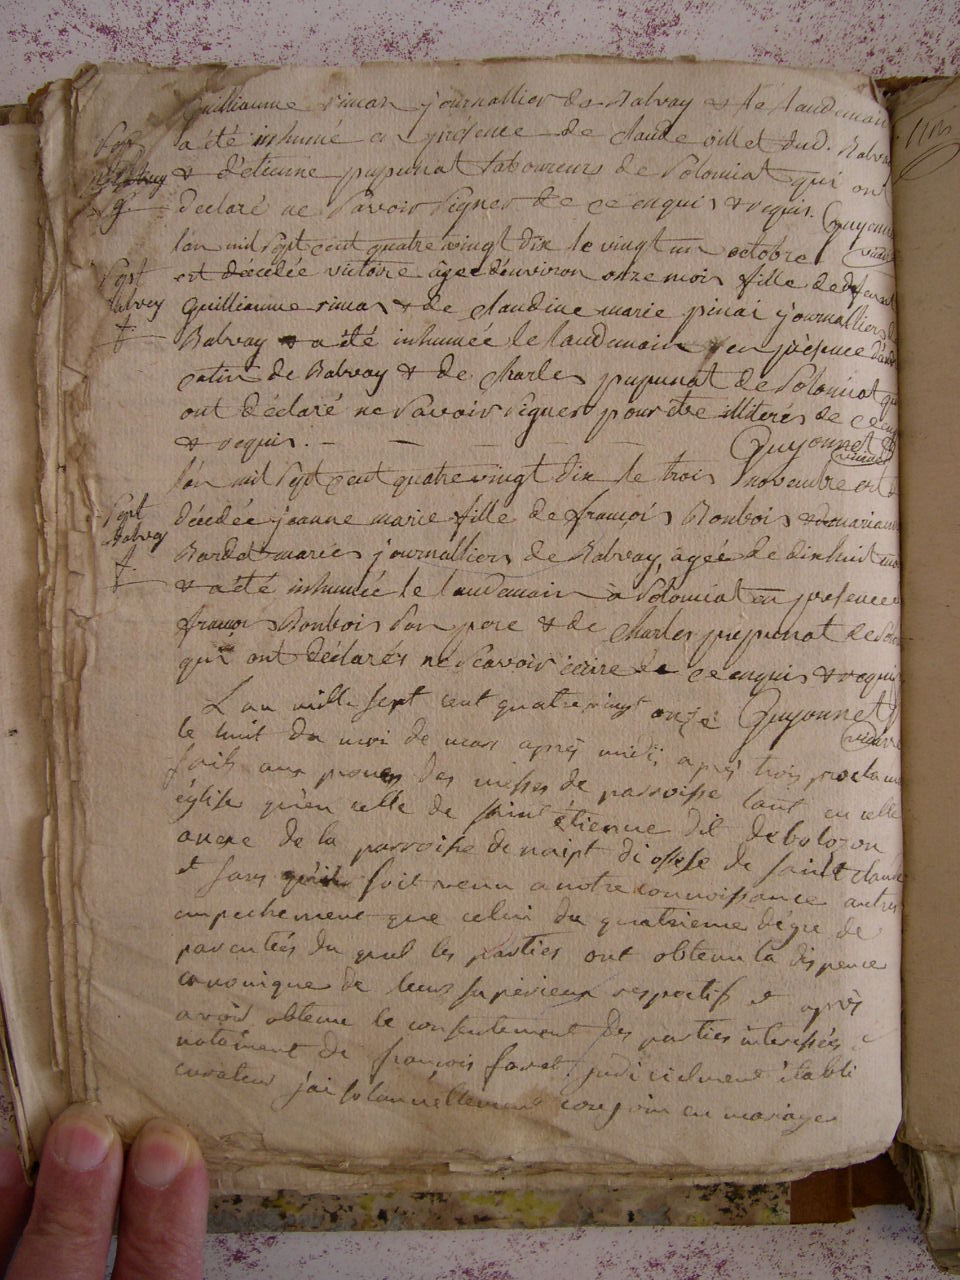 Guilliaume rimas journallier de Balvay & le landemain
a été inhumé en présence de claude villet dud. Balvay
& d'étienne pupunat laboureurs de Solomiat qui on
declaré ne savoir signer de ce enquis & requis. Guyonnet
vicaire
l'an mil sept cent quatre vingt dix le vingt un octobre
Spt
balvey
est décédée victoire âgée d'environ onze mois fille de défunt
Guilliaume rimas & de claudine marie pinai journalliers de
Balvay & a été inhumée le landemain en présence
catin de Balvay & de charles pupunat de Solomiat qui
ont déclaré ne savoir signer pour être illiterés de ce enq
& requis. Guyonnet
vicaire
l'an mil sept cent quatre vingt dix le trois novembre est
Spt
Balvay
décédée jeanne marie fille de françois Bonbois &
Bardet mariés journalliers de Balvay, âgée de dixhuit mois
& a été inhumée le landemain à Solomiat en présence
françois Bonbois son pere & de charles pupunat de Solo
qui ont déclarés ne scavoir écrire de ce enquis & requis
Guyonnet
vicaire
L'an mille sept cent quatre vingt onze
le huit du moi de mars après midi, après trois proclama
faits aux prones des messes de parroisse tant en celle
église qu'en celle de saint étienne dit de bolozon
anexe de la parroisse de napt diossese de saint claude
et sans qu'il soit venu a notre connoissance autres
empechement que celui du quatrieme dégré de
parentés du quel les parties ont obtenu la dispence
canonique de leurs supérieurs respectifs et après
avoir obtenu le consentement des parties interessés
notament de françois favet judicielment établi
curateur j'ai solannellement conjoin en mariage